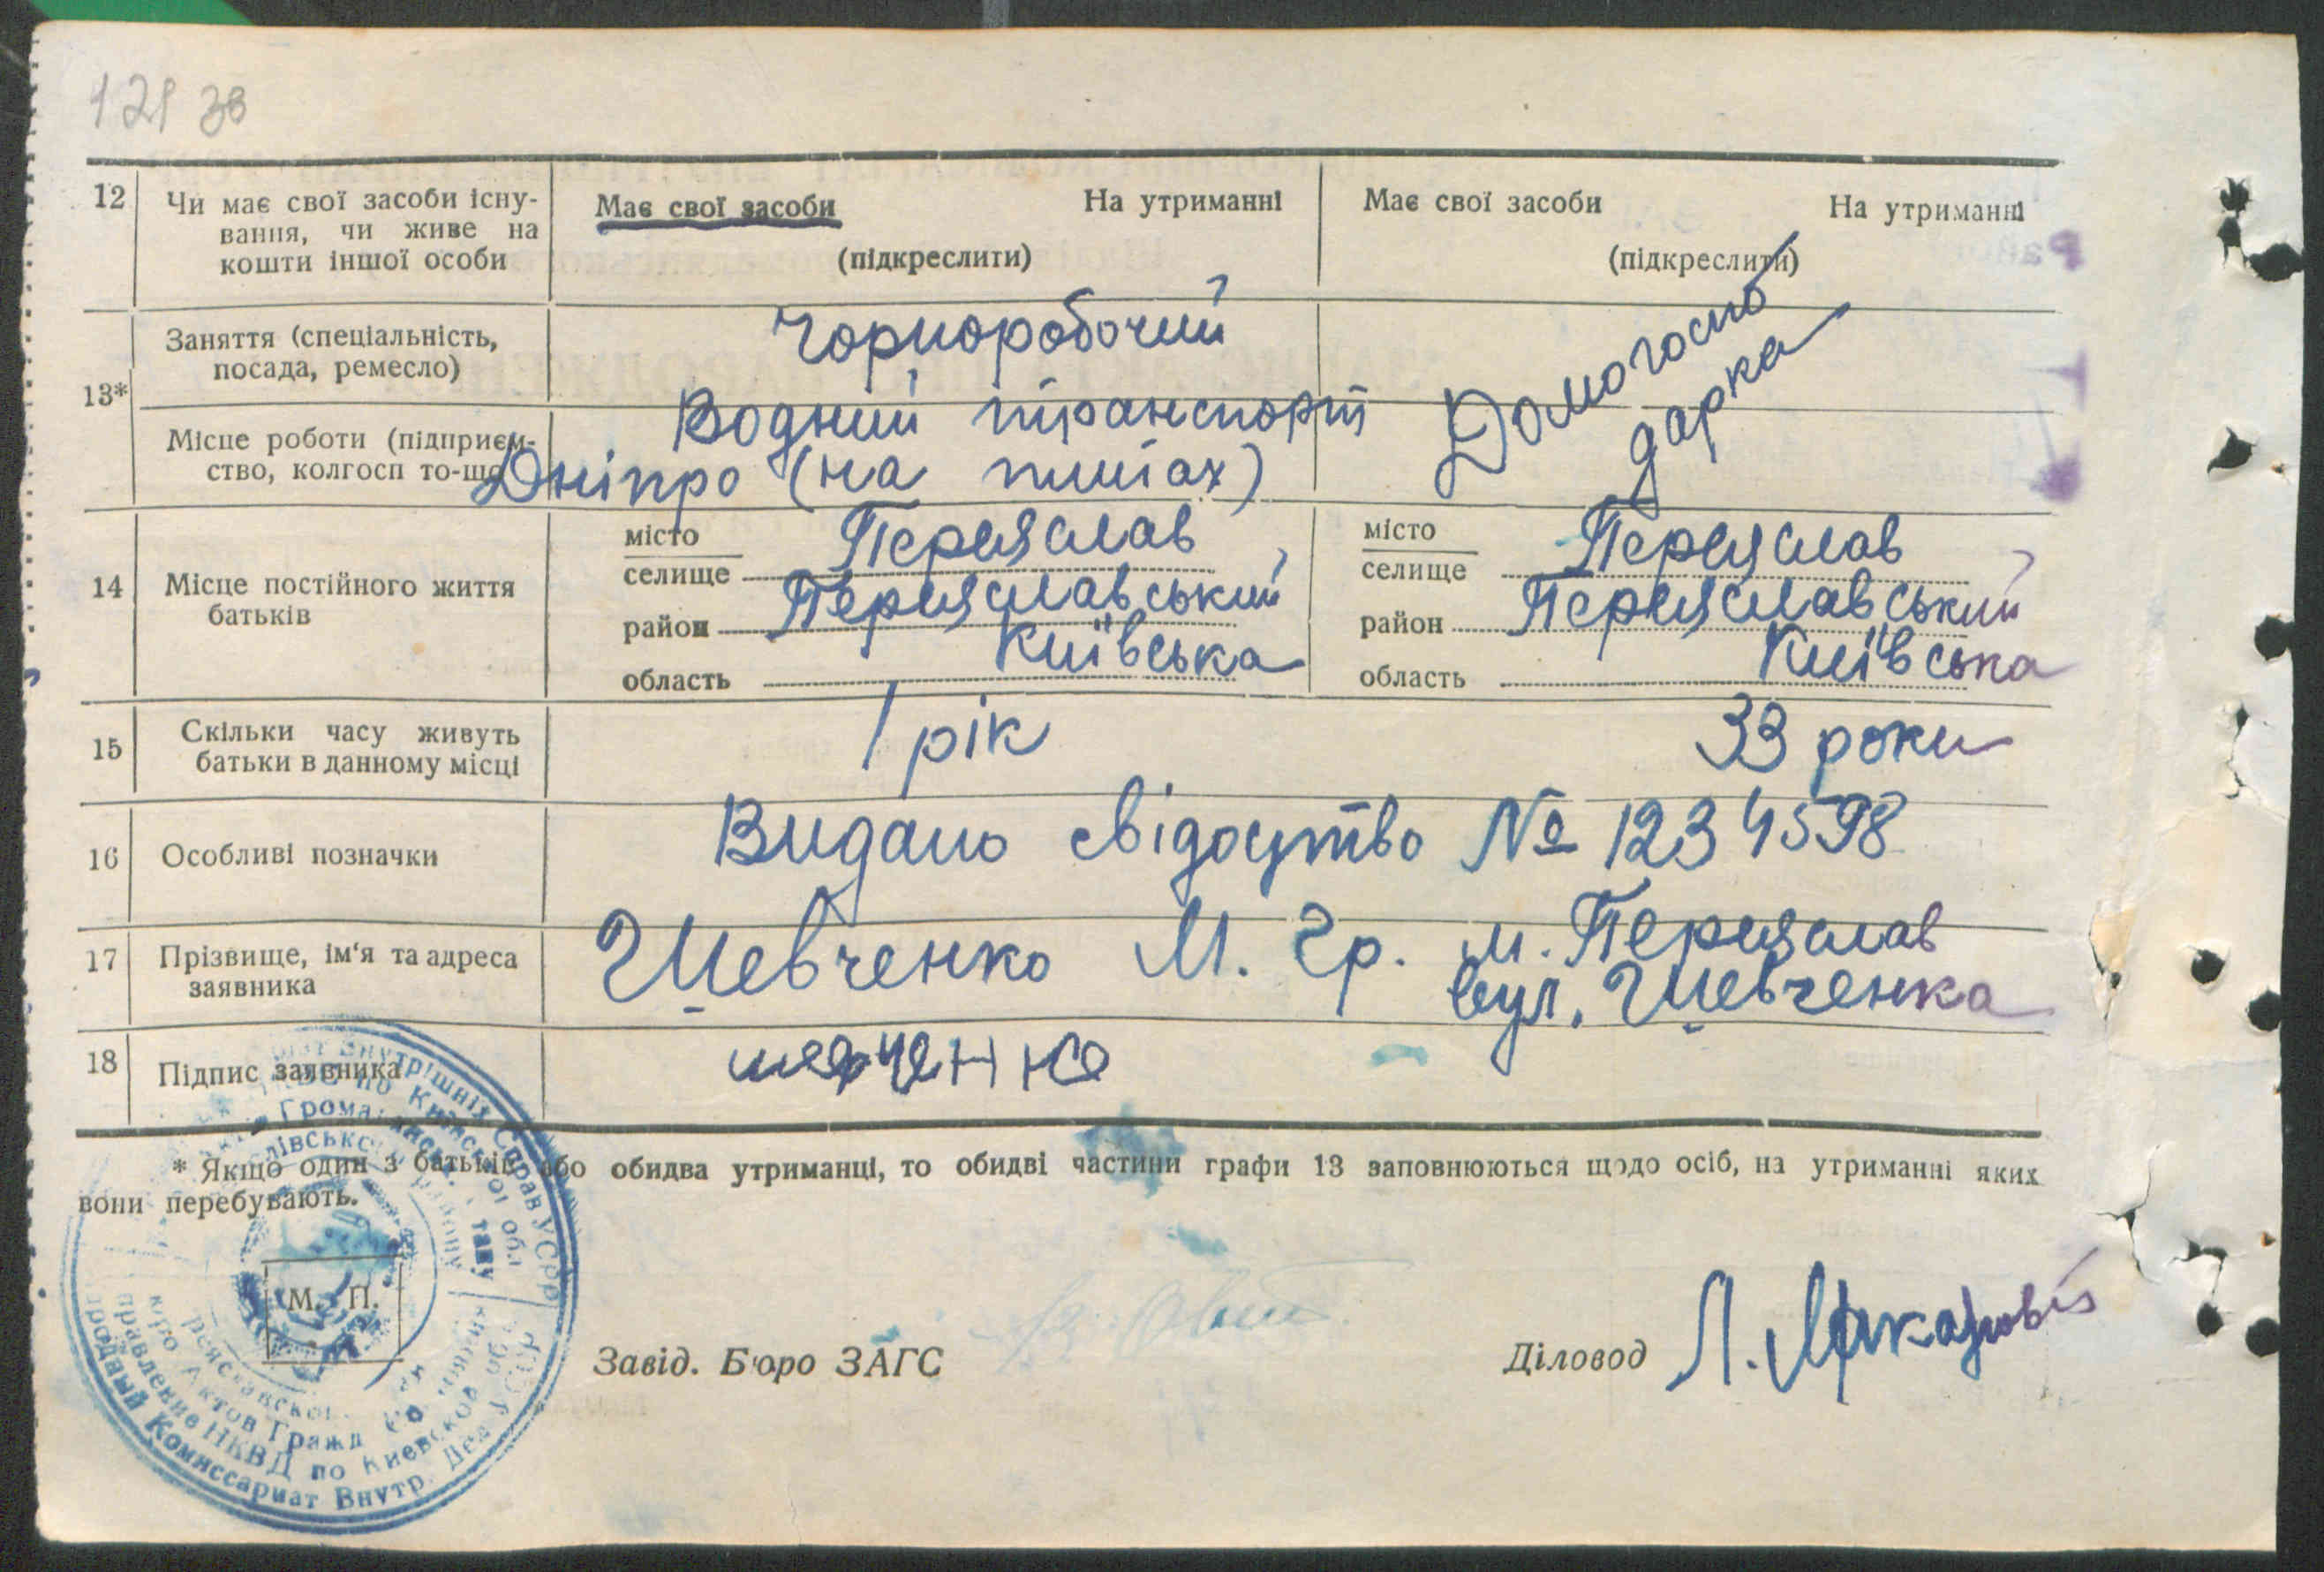 121 зв
12 Чи має свої засоби існу-
вання, чи живе на
кошти іншої особи
Має свої засоби На утриманні
(підкреслити)
Має свої засоби На утриманні
(підкреслити)
13*
Заняття (спеціальність,
посада, ремесло)
Чорноробочий
Домогоспо
дарка
Місце роботи (підприєм-
ство, колгосп то-що
Водний транспорт
Дніпро (на плотах)
14 Місце постійного життя
батьків
місто
селище Переяслав
район Переяславський
область Київська
місто
селище Переяслав
район Переяславський
область Київська
15 Скільки часу живуть
батьки в данному місці
1 рік 33 роки
16 Особливі позначки
Видано свідоцтво № 1234598
17 Прізвище, ім'я та адреса
заявника
Шевченко М. Гр. м. Переяслав
вул. Шевченка
18 Підпис заявника
* Якщо один з батьків або обидва утриманці, то обидві частини графи 13 заповнюються щодо осіб, на утриманні яких
вони перебувають.
М. П.
Завід. Бюро ЗАГС
Діловод Л.
Внутрішніх Справ УСРР
по Київської обл
правление НКВД по Киевской
Комиссариат Внутр. Дел УССР
Актов Гражд